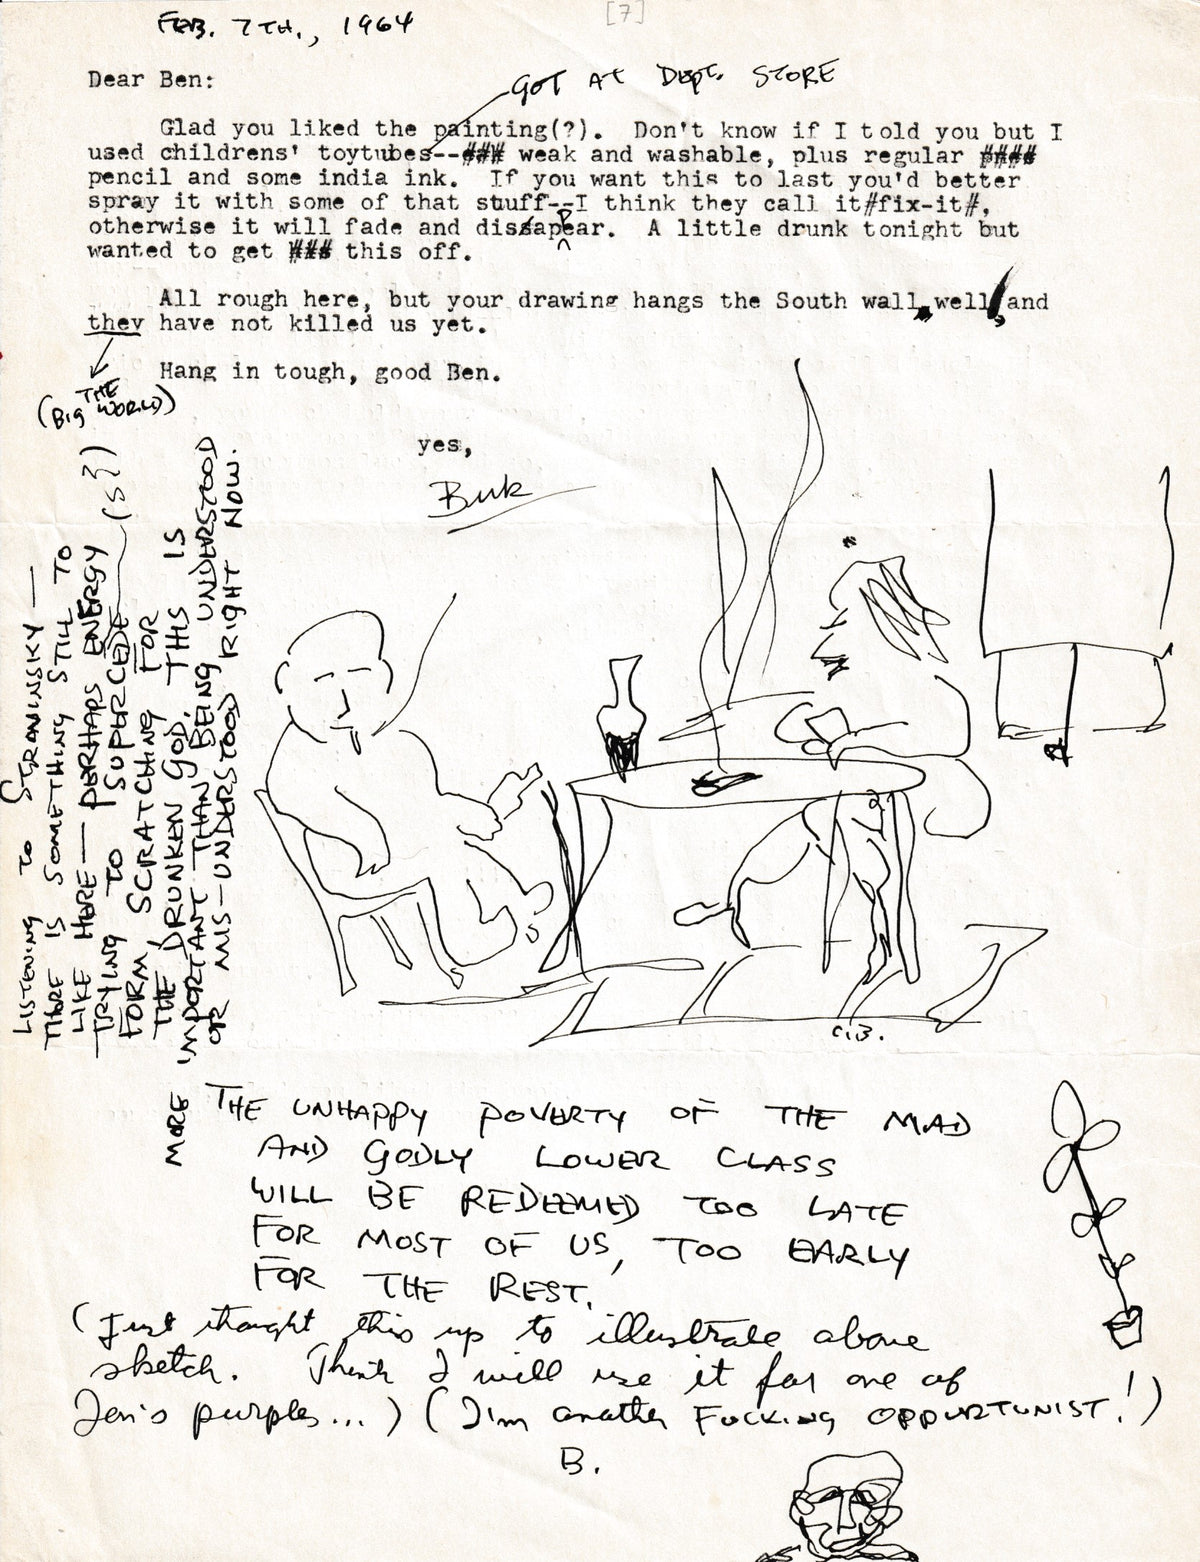 [7]
FEB. 7TH., 1964
Dear Ben:
GOT AT DEPT. STORE
Glad you liked the painting(?). Don't know if I told you but I
used childrens' toytubes--### weak and washable, plus regular ####
pencil and some india ink. If you want this to last you'd better
spray it with some of that stuff--I think they call it#fix-it#,
otherwise it will fade and disapPear. A little drunk tonight but
wanted to get ### this off.
All rough here, but your drawing hangs the South wall, well, and
they have not killed us yet.
(THE
BIG WORLD)
Hang in tough, good Ben.
yes,
Buk
LISTENING TO STRAVINSKY —
THERE IS SOMETHING STILL TO
LIKE HERE — PERHAPS ENERGY
TRYING TO SUPERCEDE (S?)
FORM SCRATCHING FOR
THE DRUNKEN GOD. THIS IS
MORE IMPORTANT THAN BEING UNDERSTOOD
OR MIS-UNDERSTOOD RIGHT NOW.
C.B.
THE UNHAPPY POVERTY OF THE MAD
AND GODLY LOWER CLASS
WILL BE REDEEMED TOO LATE
FOR MOST OF US, TOO EARLY
FOR THE REST.
(Just thought this up to illustrate above
sketch. Think I will use it for one of
Jon's purples...) (I'm another FUCKING OPPURTUNIST!)
B.